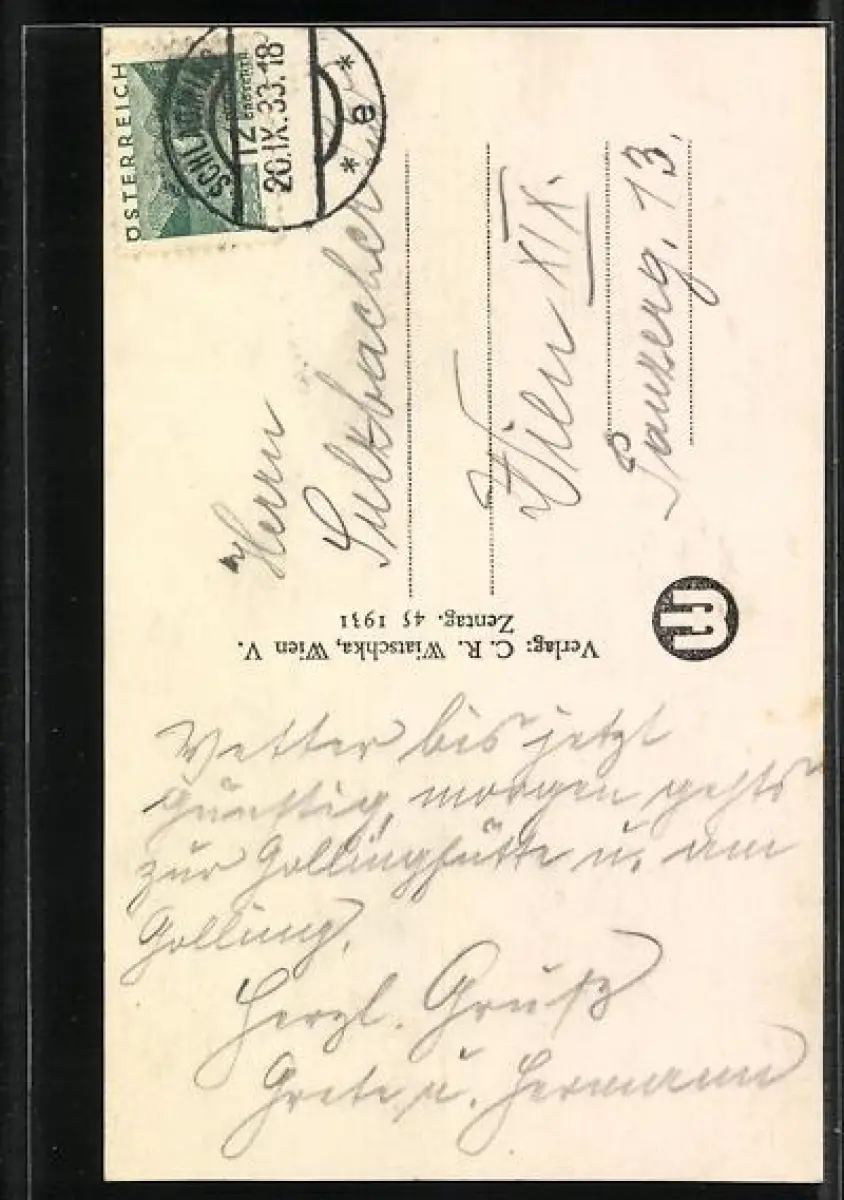 ÖSTERREICH
12
GROSCHEN
SCHLADMING
20.IX.33.18
* e *
Herrn
Sulzbacher
Wien XIX.
13.
Verlag: C. R. Wiatschka, Wien V.
Zentag. 45 1931
Wetter bis jetzt
günstig, morgen gehts
zur Gollinghütte u. am
Golling.
Herzl. Gruß
Grete u. Hermann